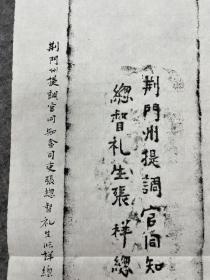 荆門州提調官同知
總督礼生張祥總
荆門州提調官同知司吏張總督礼生詳總